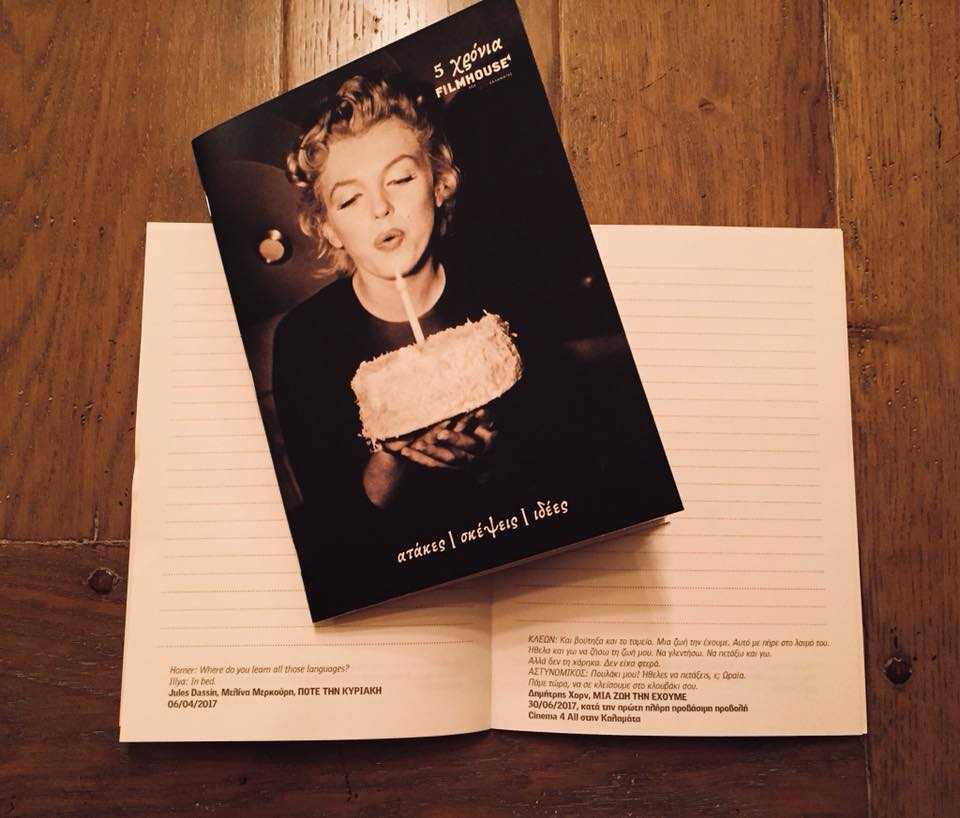 5 χρόνια
FILMHOUSE
ατάκες | σκέψεις | ιδέες
Homer: Where do you learn all those languages?
Illya: In bed.
Jules Dassin, Μελίνα Μερκούρη, ΠΟΤΕ ΤΗΝ ΚΥΡΙΑΚΗ
06/04/2017
ΚΛΕΩΝ: Και βούτηξα και το ταμείο. Μια ζωή την έχουμε. Αυτό με πήρε στο λαιμό του.
Ήθελα και γω να ζήσω τη ζωή μου. Να γλεντήσω. Να πετάξω και γω.
Αλλά δεν τη χάρηκα. Δεν είχα φτερά.
ΑΣΤΥΝΟΜΙΚΟΣ: Πουλάκι μου! Ήθελες να πετάξεις, ε; Ωραία.
Πάμε τώρα, να σε κλείσουμε στο κλουβάκι σου.
Δημήτρης Χορν, ΜΙΑ ΖΩΗ ΤΗΝ ΕΧΟΥΜΕ
30/06/2017, κατά την πρώτη πλήρη προβάσιμη προβολή
Cinema 4 All στην Καλαμάτα